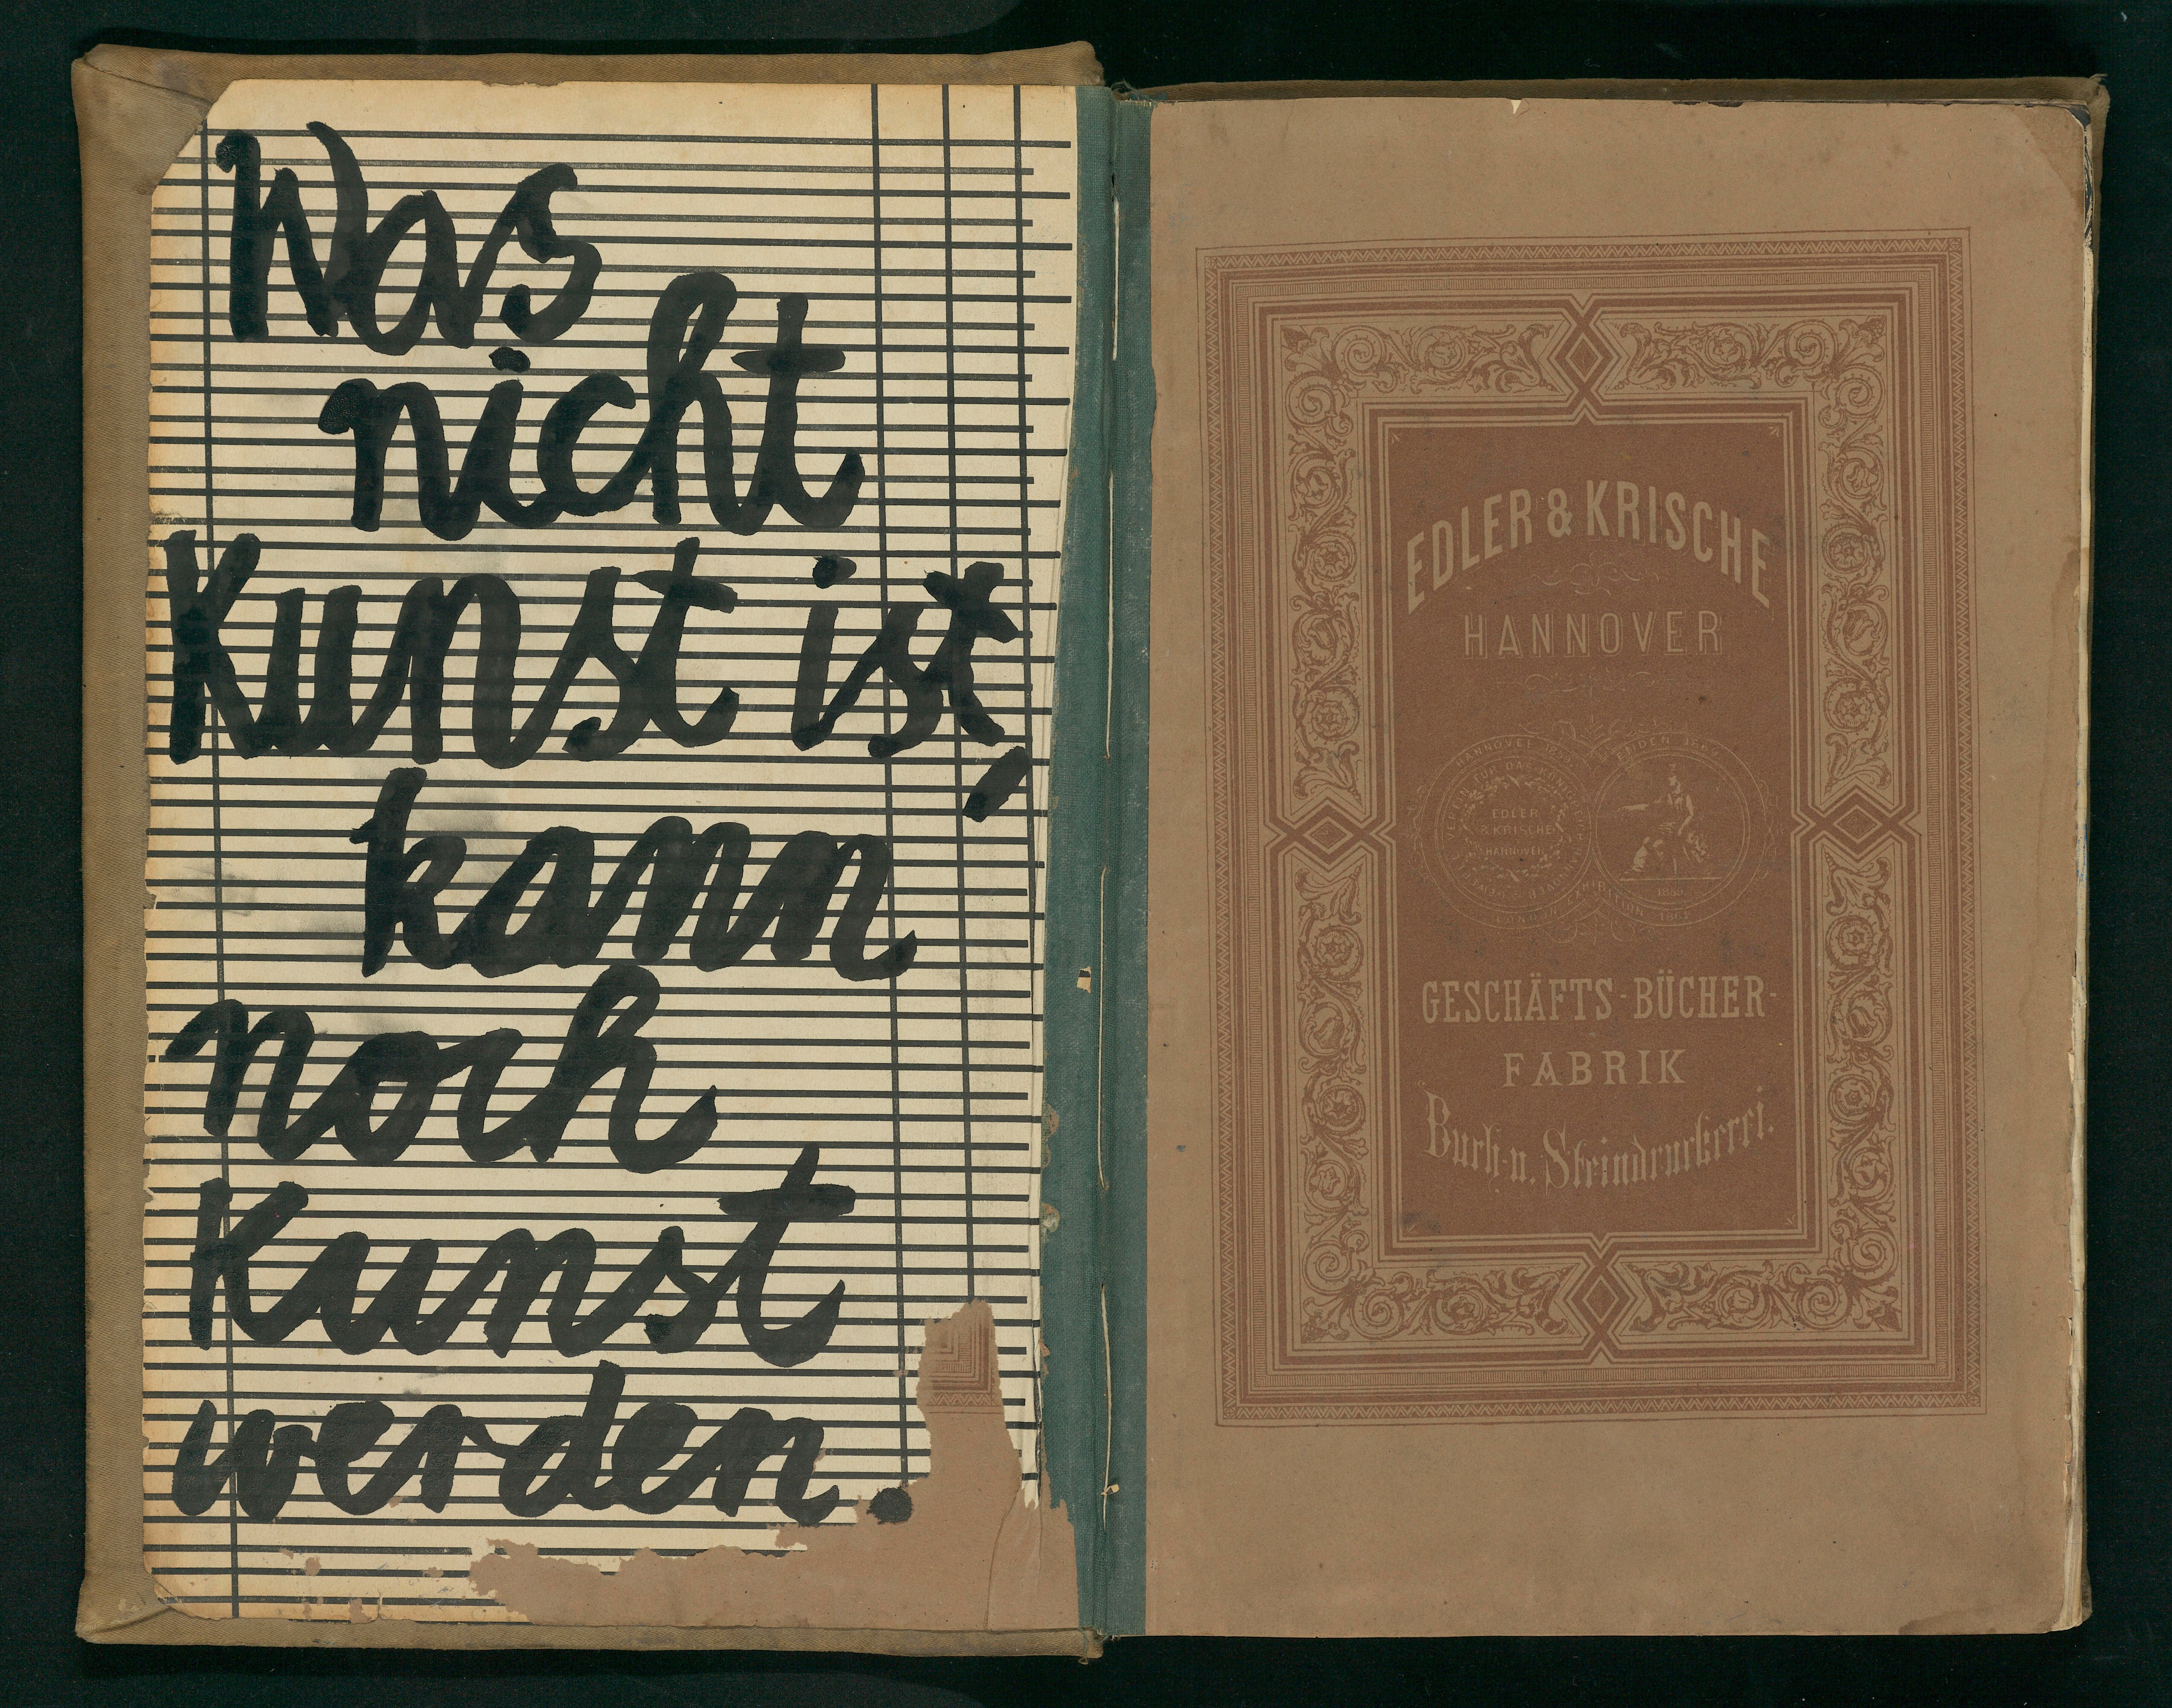 Was
nicht
Kunst ist,
kann
noch
Kunst
werden.
EDLER & KRISCHE
HANNOVER
EDLER
& KRISCHE
HANNOVER
GESCHÄFTS-BÜCHER-
FABRIK
Buch- u. Steindruckerei.